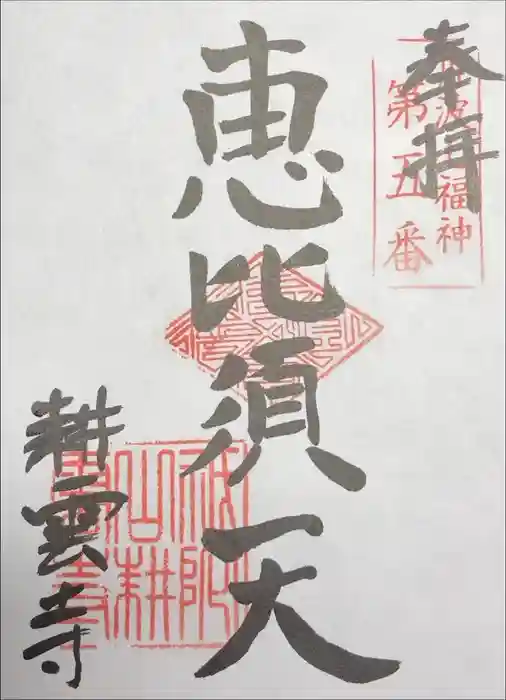 奉拝
波 福神
第五番
恵比須天
耕雲寺